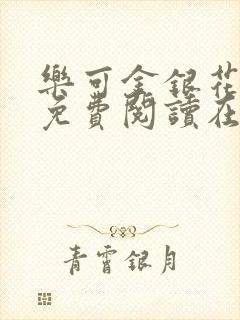 樂可金銀花
免費閱讀在
青霄銀月